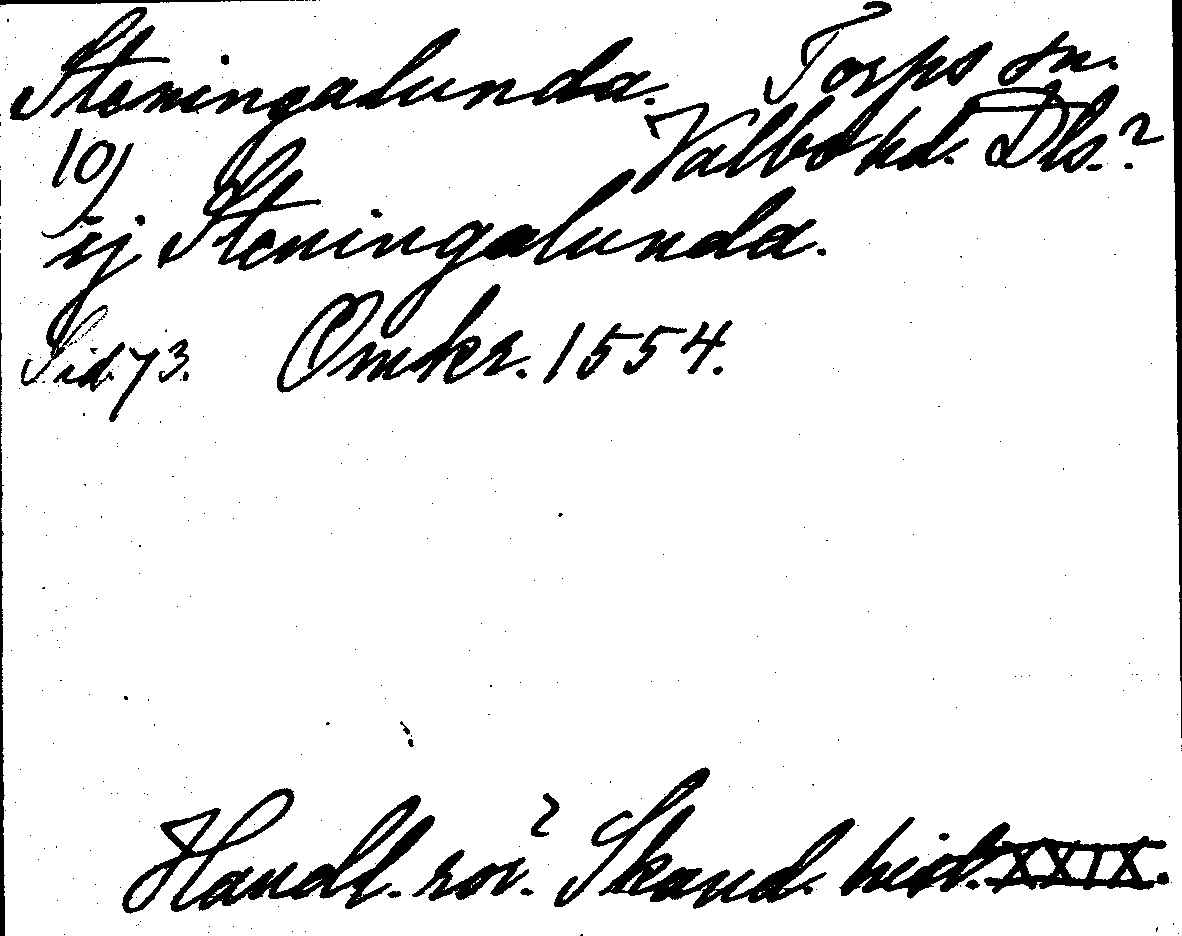 Steningalunda. Torps sn.
Valbo hd. Dls.?
10/
ij Steningalunda.
Sid. 73. Omkr. 1554.
Handl. rör. Skand. hist. XXIX.